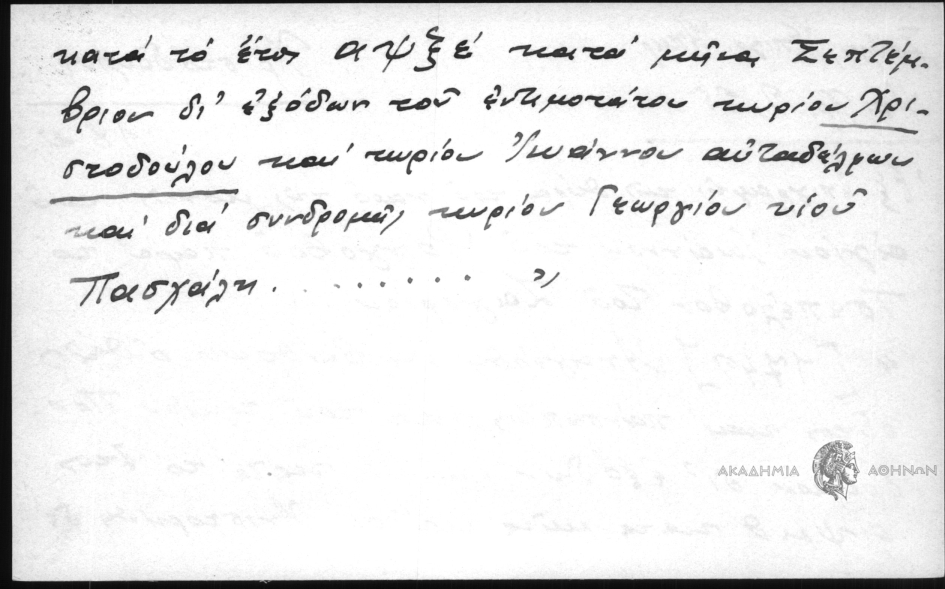 κατά τό ἔτος αψξέ κατά μῆνα Σεπτέμ-
βριον δι' ἐξόδων τοῦ ἐντιμοτάτου κυρίου Χρι-
στοδούλου καί κυρίου Ἰωάννου αὐταδέλφων
καί διά συνδρομῆς κυρίου Γεωργίου υἱοῦ
Πασχάλη . . . . . . . . . "
ΑΚΑΔΗΜΙΑ ΑΘΗΝΩΝ